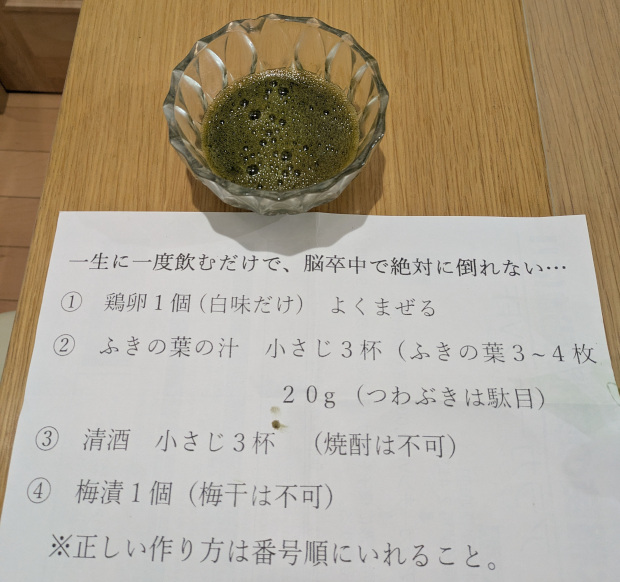 一生に一度飲むだけで、脳卒中で絶対に倒れない…
① 鶏卵１個（白味だけ） よくまぜる
② ふきの葉の汁 小さじ３杯（ふきの葉３~４枚
２０g（つわぶきは駄目）
③ 清酒 小さじ３杯 （焼酎は不可）
④ 梅漬１個（梅干は不可）
※正しい作り方は番号順にいれること。